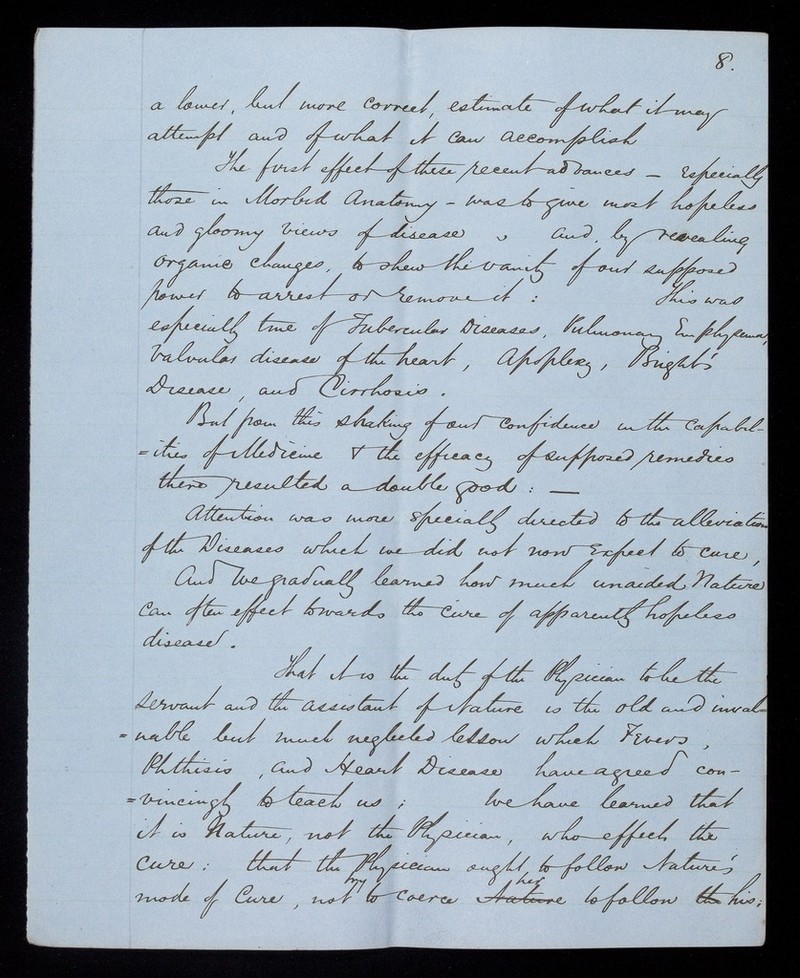 8.
a lower, but more correct, estimate of what it may
attempt and of what it can accomplish
The first effect of these recent advances — especially
those in Morbid Anatomy – was to give most hopeless
and gloomy views of disease , and, by revealing
organic changes, to shew the vanity of our supposed
power to arrest or remove it : This was
especially true of Tubercular Diseases, Pulmonary Emphysema,
Valvular disease of the heart, Apoplexy, Bright's
Disease, and Cirrhosis.
But from this shaking of our confidence in the capabil-
=ities of Medicine & the efficacy of supposed remedies
there resulted a double good : —
Attention was more specially directed to the alleviation
of the Diseases which we did not now expect to cure,
And we gradually learned how much unaided Nature
can often effect towards the cure of apparently hopeless
disease.
That it is the duty of the Physician to be the
servant and the assistant of Nature is the old and inval-
=uable but much neglected lesson which Fevers,
Phthisis, and Heart Disease have agreed con-
=vincingly to teach us ; We have learned that
it is Nature, not the Physician, who effects the
cure : that the Physician ought to follow Nature's
mode of Cure, not try to coerce Nature her to follow the his;